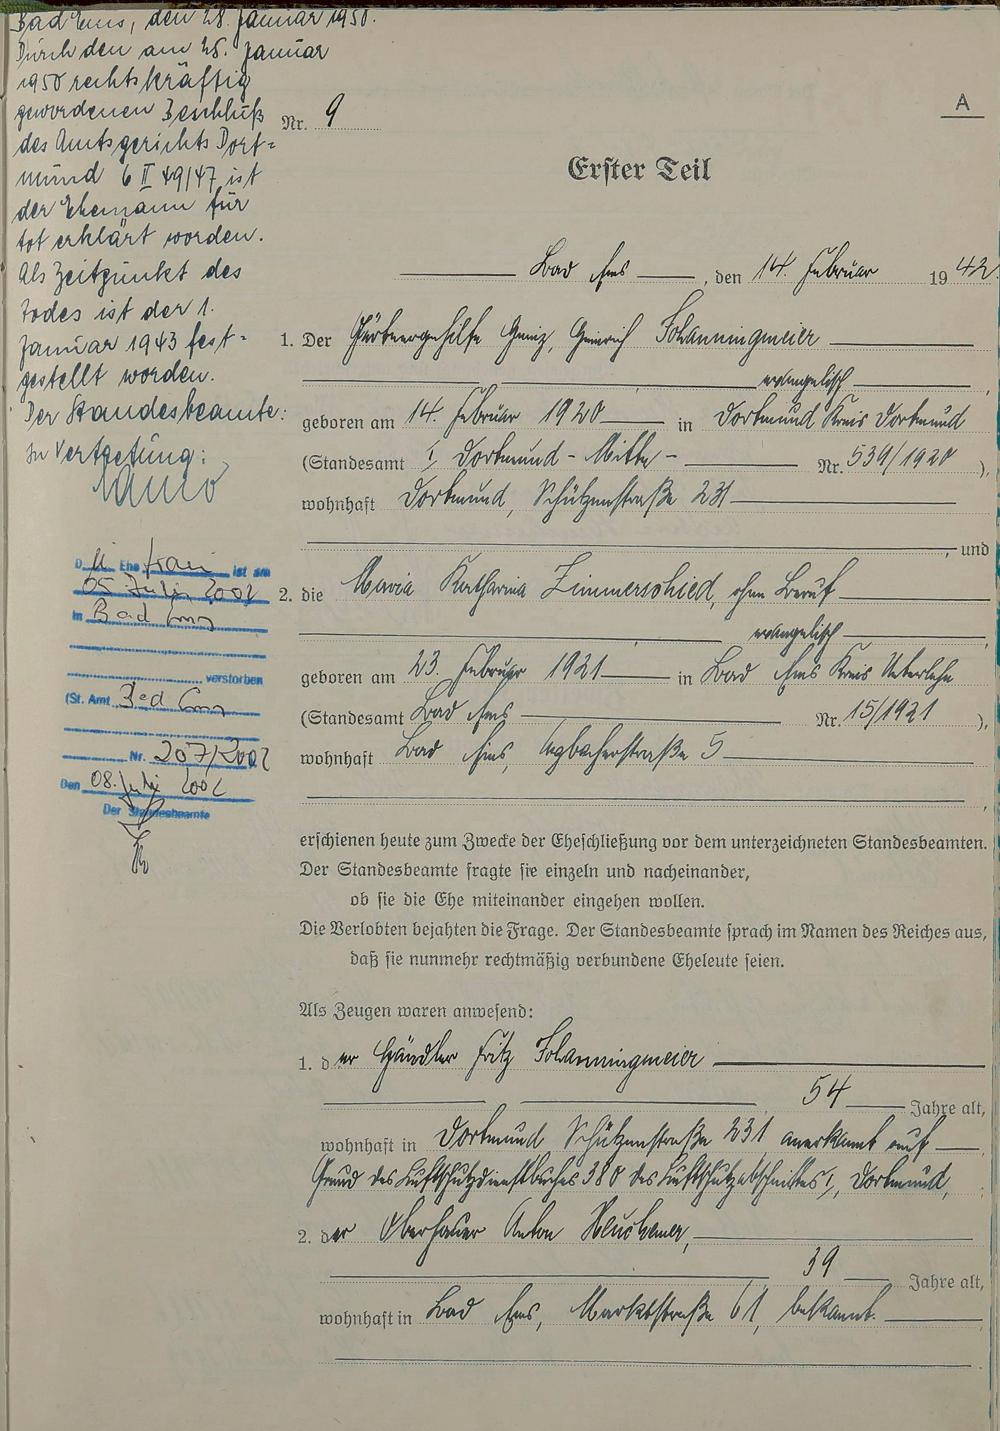 Bad Ems, den 28. Januar 1950.
Durch den am 25. Januar
1950 rechtskräftig
gewordenen Beschluß
des Amtsgerichts Dort=
mund 6 II 49/47 ist
der Ehemann für
tot erklärt worden.
Als Zeitpunkt des
Todes ist der 1.
Januar 1943 fest=
gestellt worden.
Der Standesbeamte:
In Vertretung:
D ie Ehe frau ist am
05. Juli 2002
in Bad Ems
verstorben
(St. Amt Bad Ems
Nr. 207/2002
Den 08. Juli 2002
Der Standesbeamte
A
Nr. 9
Erster Teil
Bad Ems, den 14. Februar 1942.
1. Der Gärtnergehilfe Heinz, Heinrich Schanningmeier
evangelisch,
geboren am 14. Februar 1920 in Dortmund Kreis Dortmund
(Standesamt I, Dortmund - Mitte - Nr. 539/1920),
wohnhaft Dortmund, Schützenstraße 231
, und
2. die Maria Katharina Zimmerschied, ohne Beruf
evangelisch,
geboren am 23. Februar 1921 in Bad Ems Kreis Unterlahn
(Standesamt Bad Ems Nr. 15/1921),
wohnhaft Bad Ems, Arzbacherstraße 5
,
erschienen heute zum Zwecke der Eheschließung vor dem unterzeichneten Standesbeamten.
Der Standesbeamte fragte sie einzeln und nacheinander,
ob sie die Ehe miteinander eingehen wollen.
Die Verlobten bejahten die Frage. Der Standesbeamte sprach im Namen des Reiches aus,
daß sie nunmehr rechtmäßig verbundene Eheleute seien.
Als Zeugen waren anwesend:
1. der Händler Fritz Schanningmeier
54 Jahre alt,
wohnhaft in Dortmund Schützenstraße 231 anerkannt auf
Grund des Luftschutzdienstbuches 380 des Luftschutzabschnittes I, Dortmund,
2. der Oberhauer Anton
39 Jahre alt,
wohnhaft in Bad Ems, Marktstraße 61, bekannt.